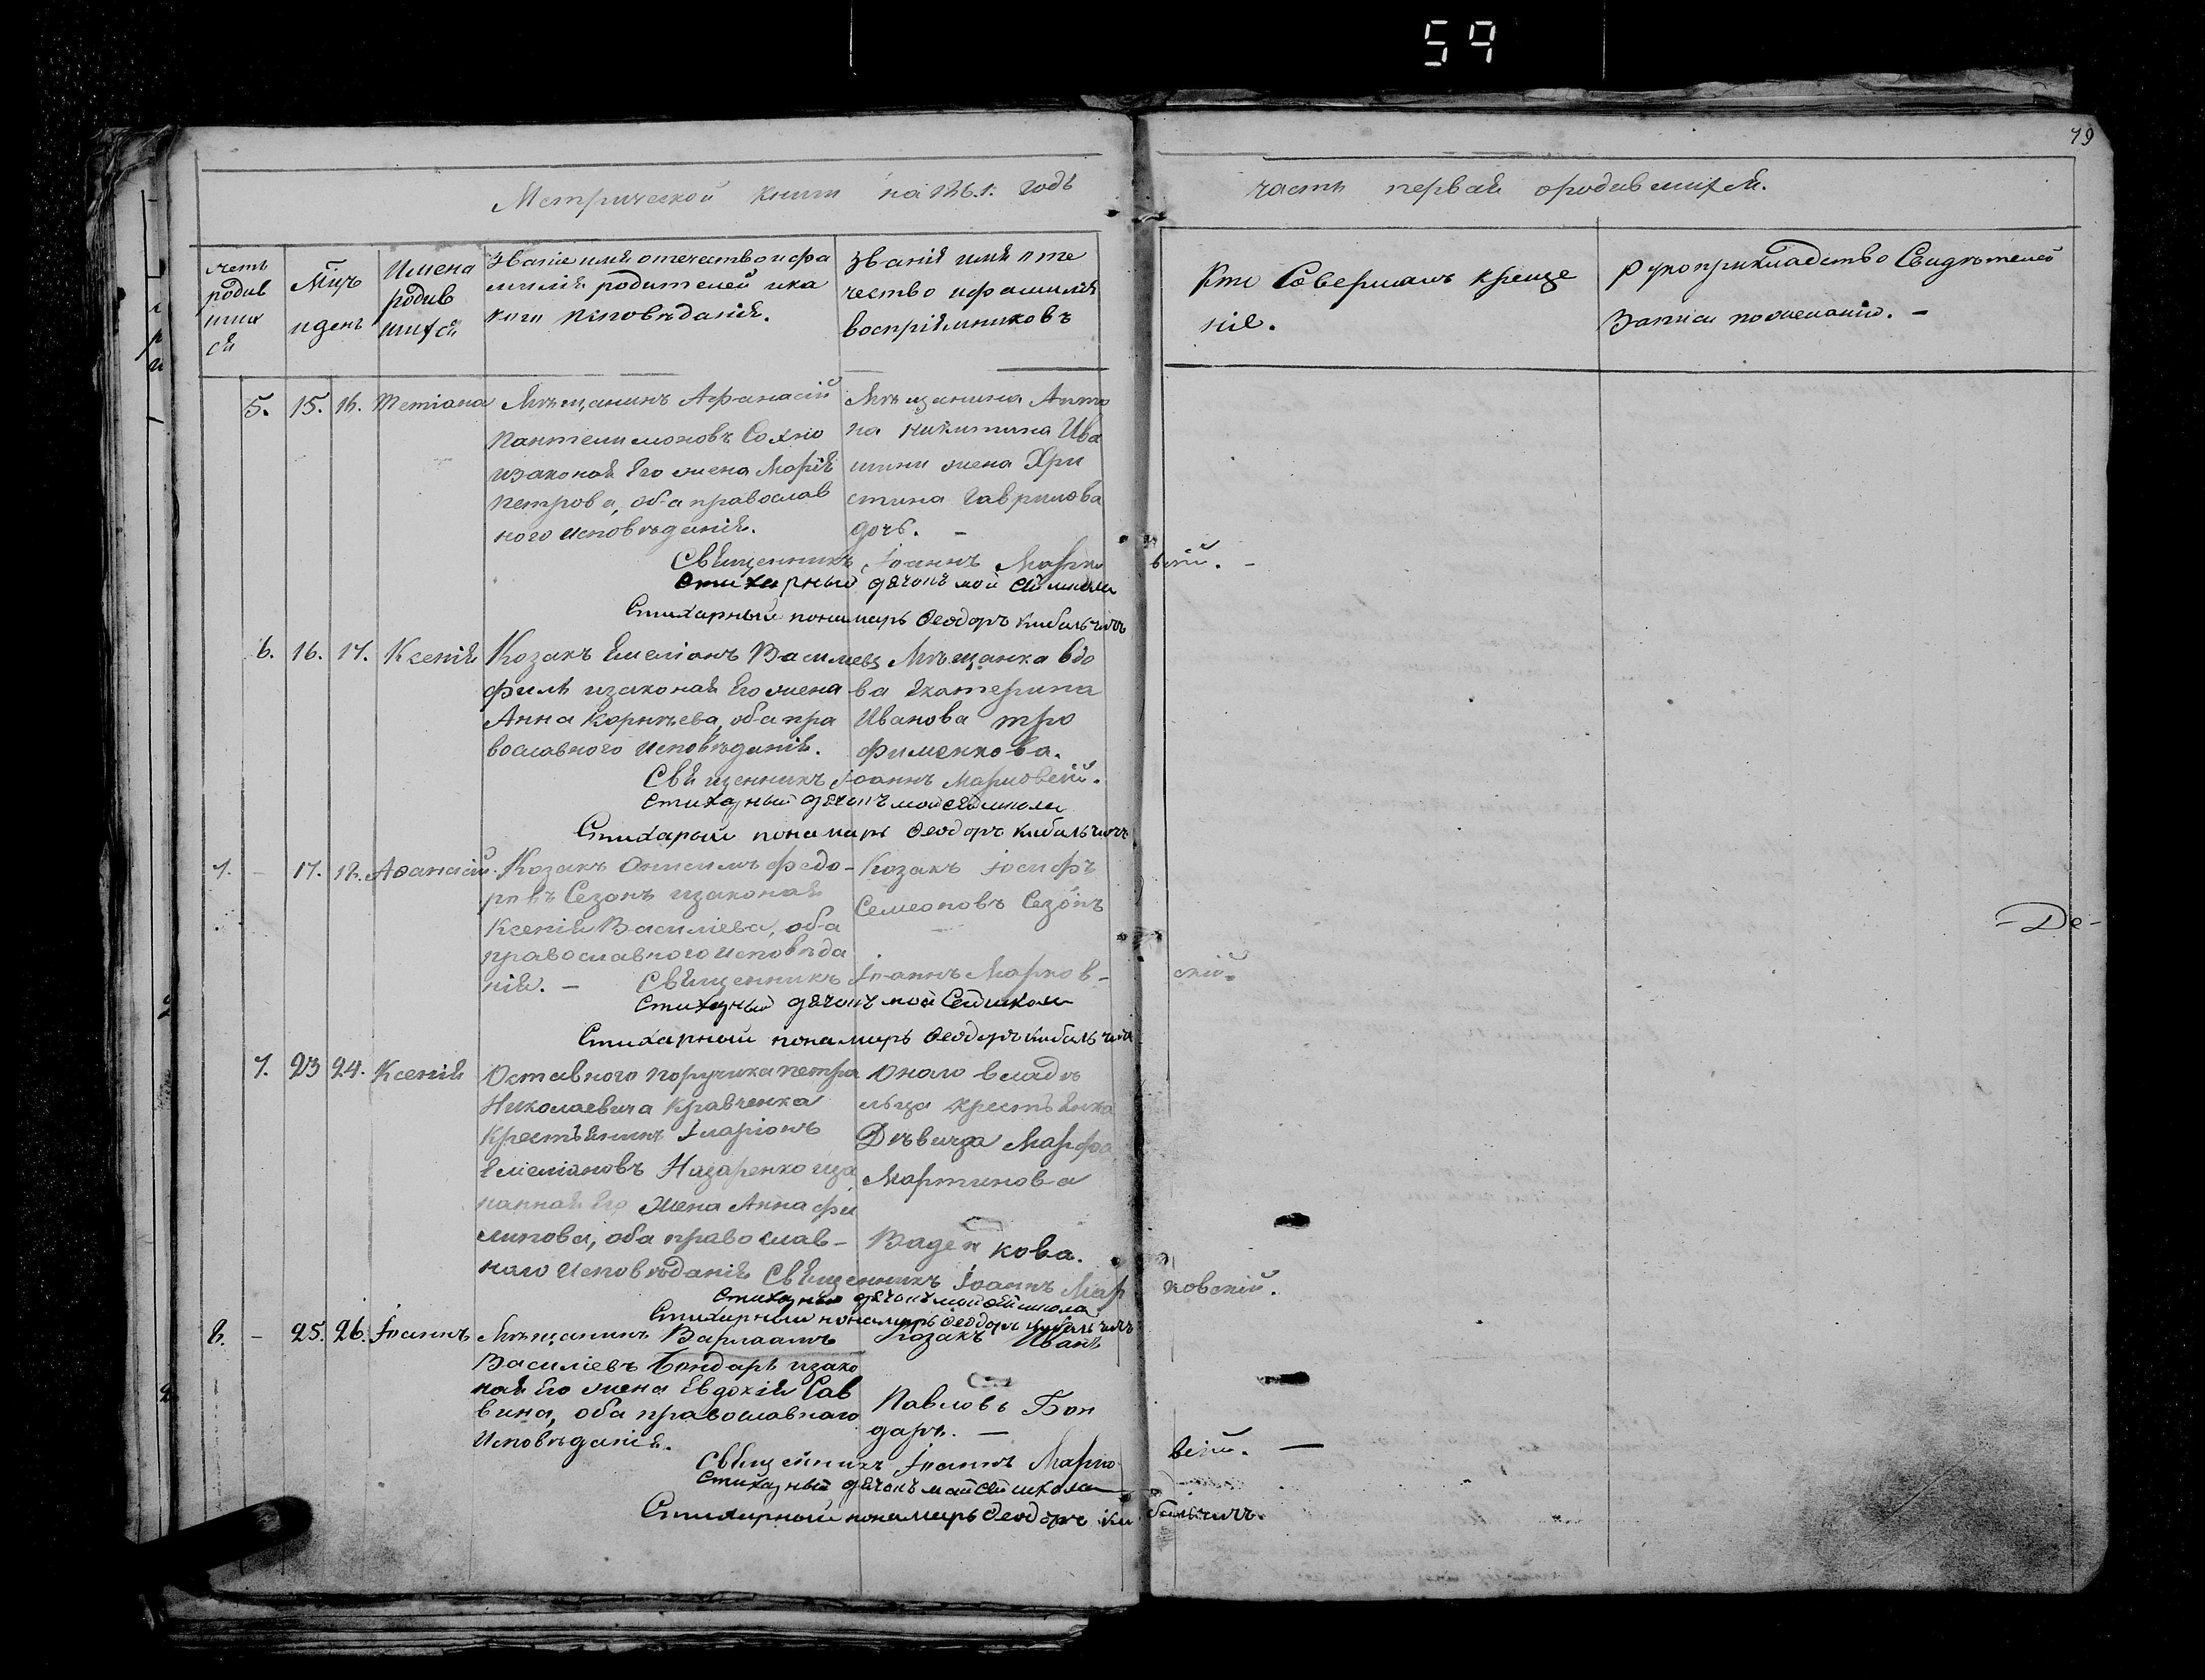 59
79
Метрической книги на 1861: годъ
часть первая ородившихся.
счетъ
родив
ших
ся
Мцъ
и день
Имена
родив
шихся
Званіе имя отечество и фа
милія родителей и ка
кого исповѣданія.
Званія имя оте
чество и фамилія
воспріемниковъ
Кто Совершалъ креще
ніе.
Рукоприкладство Свидѣтелей
Записи по желанію. -
5. 15. 16. Тетіана
Мѣщанинъ Афанасій
Пантелимоновъ Сохно
изаконая Его жена Марія
Петрова, оба православ
ного исповѣданія.
Мѣщанина Анто
на Никитина Ива
шини жена Хри
стина Гаврилова
дочь. -
Священникъ Іоаннъ Марко вскій. -
Стихарный дячокъ
Стихарный понамарь Ѳеодоръ Кибальчичъ
6. 16. 17. Ксенія
Козакъ Емеліанъ Василіевъ
филь изаконая Его жена
Анна Корнѣева, оба пра
вославного исповѣданія.
Мѣщанка вдо
ва Екатерина
Иванова тро
фименкова.
Священникъ Іоаннъ Марковскій.
Стихарный дячокъ
Стихарый понамарь Ѳеодоръ Кибальчичъ
7. - 17. 18. Аѳанасій.
Козакъ Онисимъ Федо-
ровъ Сезонъ изаконая
Ксенія Василіева, оба
православного исповѣда
нія. -
Козакъ Іосифъ
Семеоновъ Сезонъ
-Де-
Священникъ Іоаннъ Марков- скій.
Стихарный дячокъ
Стихарный понамарь Ѳеодоръ Кибальчичъ
7. 23 24. Ксенія
Оставного поручика Петра
Николаевича Кравченка
Крестьянинъ Іларіонъ
Емеліановъ Назаренко иза
конная Его жена Анна Фи
липова, оба православ-
наго исповѣданія
Оного владѣ
льца крестьянка
Дѣвица Марфа
Мартинова
кова.
Священникъ Іоаннъ Мар ковскій.
Стихарный дячокъ
Стихарный понамарь Ѳеодоръ Кибальчичъ
8. - 25. 26. Іоаннъ
Мѣщанинъ Варлаамъ
Василіевъ Бондарь изако
ная Его жена Евдокія Сав
вина, оба православнаго
исповѣданія.
Козакъ Иванъ
Павловъ Бон
дарь. -
Священникъ Іоаннъ Марко вскій. -
Стихарный дячокъ
Стихарный понамарь Ѳеодоръ Ки бальчичъ.